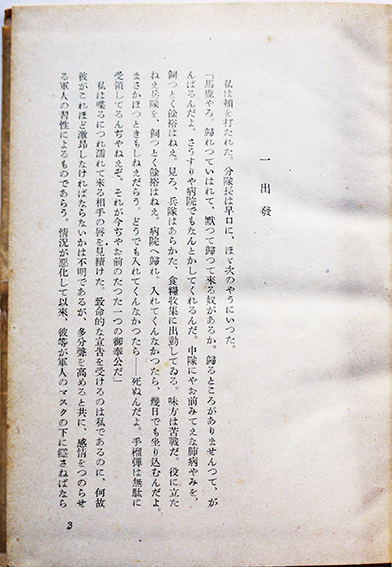 一 出 發
私は頬を打たれた。分隊長は早口に、ほゞ次のやうにいつた。
「馬鹿やろ。歸れつていはれて、默つて歸つて來る奴があるか。歸るところがありませんつて、が
んばるんだよ。さうすりや病院でもなんとかしてくれるんだ。中隊にやお前みてえな肺病やみを、
飼つとく餘裕はねえ。見ろ、兵隊はあらかた、食糧收集に出動してゐる。味方は苦戰だ。役に立た
ねえ兵隊を、飼つとく餘裕はねえ。病院へ歸れ。入れてくんなかつたら、幾日でも坐り込むんだよ。
まさかほつときもしねえだらう。どうでも入れてくんなかつたら——死ぬんだよ。手榴彈は無駄に
受領してるんぢやねえぞ。それが今ぢやお前のたつた一つの御奉公だ」
私は喋るにつれ濡れて來る相手の唇を見續けた。致命的な宣告を受けるのは私であるのに、何故
彼がこれほど激昂しなければならないかは不明であるが、多分聲を高めると共に、感情をつのらせ
る軍人の習性によるものであらう。情況が惡化して以來、彼等が軍人のマスクの下に隱さねばなら
3